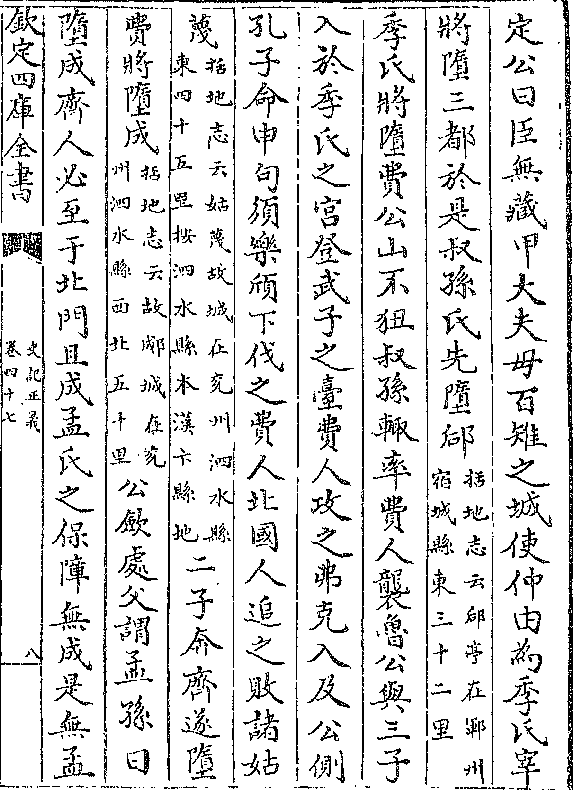 定公曰臣無藏甲大夫毋百雉之城使仲由為季氏宰
將墮三都於是叔孫氏先墮郈括地志云郈亭在鄆州宿城縣東三十二里
季氏將墮費公山不狃叔孫輒率費人襲魯公與三子
入於季氏之宮登武子之臺費人攻之弗克入及公側
孔子命申句須樂頎下伐之費人北國人追之敗諸姑
蔑括地志云姑蔑故城在兖州泗水縣東四十五里按泗水縣本漢卞縣地二子奔齊遂墮
費將墮成括地志云故郕城在兖州泗水縣西北五十里公歛處父謂孟孫曰
墮成齊人必至于北門且成孟氏之保障無成是無孟
欽定四庫全書
史記正義
卷四十七
八